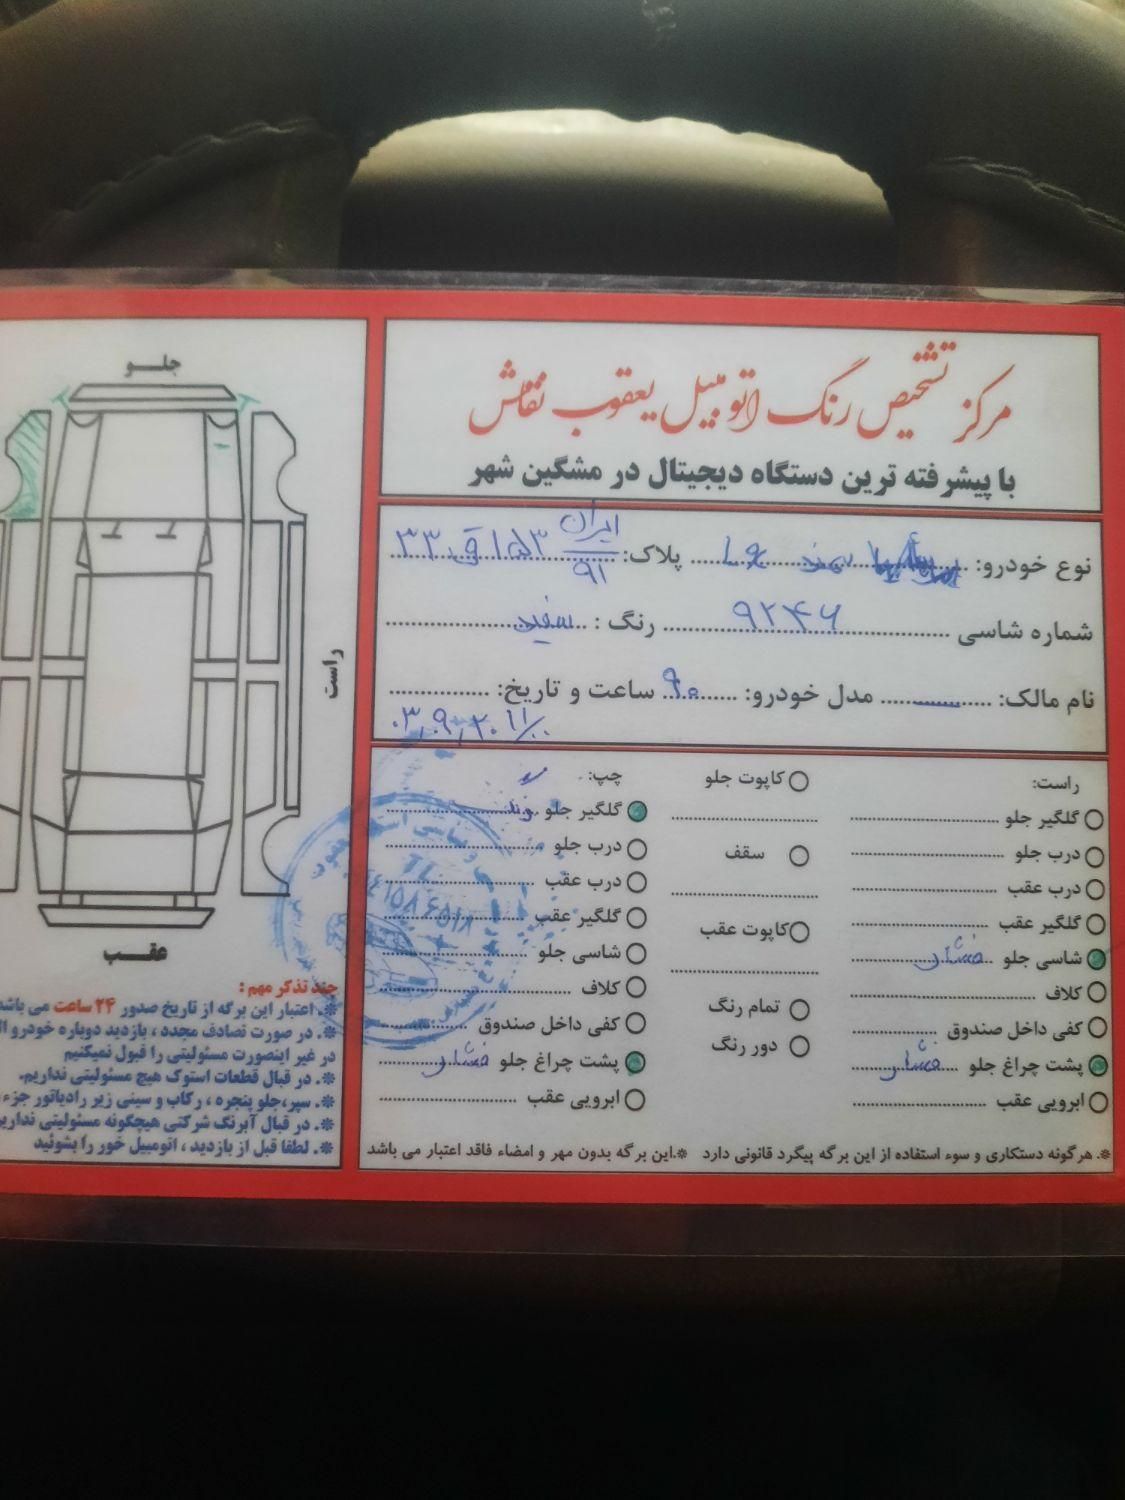 مرکز تشخیص رنگ اتومبیل یعقوب نقاش
با پیشرفته ترین دستگاه دیجیتال در مشگین شهر
نوع خودرو: سمند پلاک: ایران ۹۱ ۱۵۳ ق ۳۳
شماره شاسی ۹۲۴۶ رنگ: سفید
نام مالک: مدل خودرو: ۹۰ ساعت و تاریخ:
۰۳,۰۹,۲۰ ۱۱/۰۰
راست:
گلگیر جلو
درب جلو
درب عقب
گلگیر عقب
شاسی جلو فشار
کلاف
کفی داخل صندوق
پشت چراغ جلو فشار
ابرویی عقب
کاپوت جلو
سقف
کاپوت عقب
تمام رنگ
دور رنگ
چپ:
گلگیر جلو رنگ
درب جلو
درب عقب
گلگیر عقب
شاسی جلو
کلاف
کفی داخل صندوق
پشت چراغ جلو فشار
ابرویی عقب
*. هرگونه دستکاری و سوء استفاده از این برگه پیگرد قانونی دارد *.این برگه بدون مهر و امضاء فاقد اعتبار می باشد
جلو
راست
عقب
چند تذکر مهم :
*. اعتبار این برگه از تاریخ صدور ۲۴ ساعت می باشد
*. در صورت تصادف مجدد ، بازدید دوباره خودرو
در غیر اینصورت مسئولیتی را قبول نمیکنیم
*. در قبال قطعات استوک هیچ مسئولیتی نداریم.
*. سپر،جلو پنجره ، رکاب و سینی زیر رادیاتور جزء
*. در قبال آبرنگ شرکتی هیچگونه مسئولیتی نداریم
*. لطفا قبل از بازدید ، اتومبیل خور را بشوئید